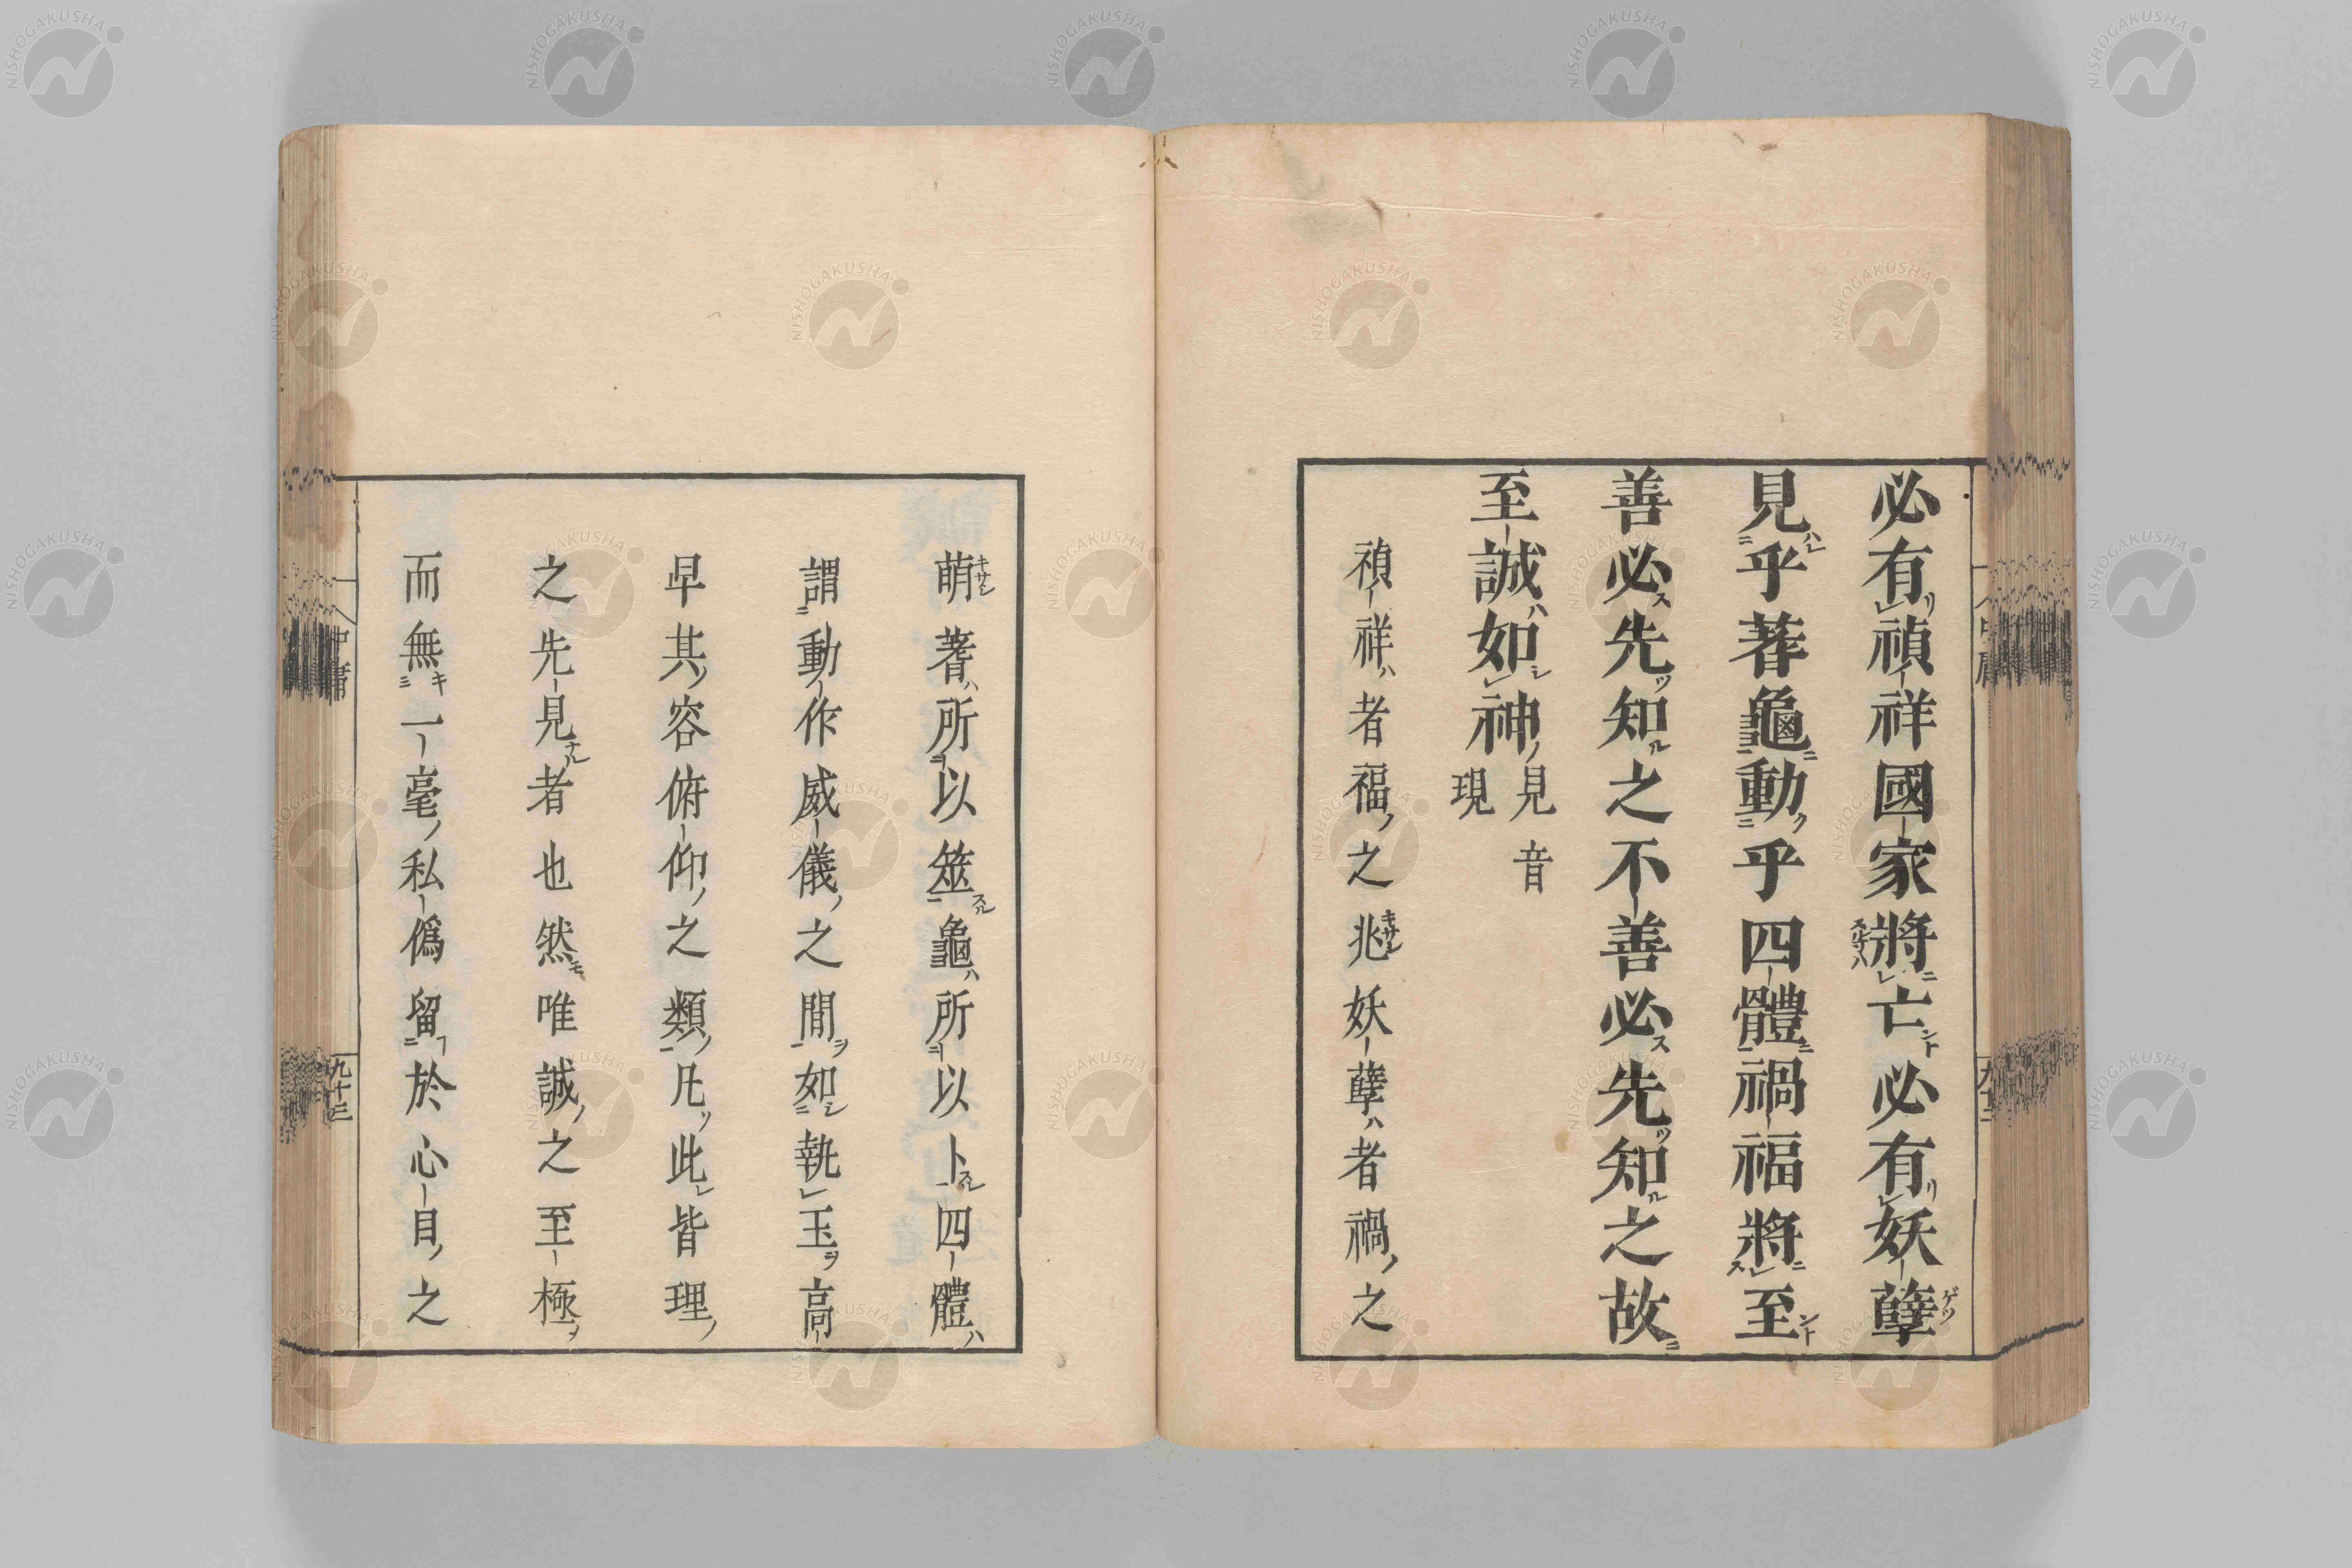 必有禎祥國家將亡必有妖孽
見乎蓍龜動乎四體禍福將至
善必先知之不善必先知之故
至誠如神見音
現
禎祥者福之兆妖孽者禍之
萌蓍所以筮龜所以卜四體
謂動作威儀之間如執玉高
早其容俯仰之類凡此皆理
之先見者也然唯誠之至極
而無一毫私偽留於心目之
中庸
九十三